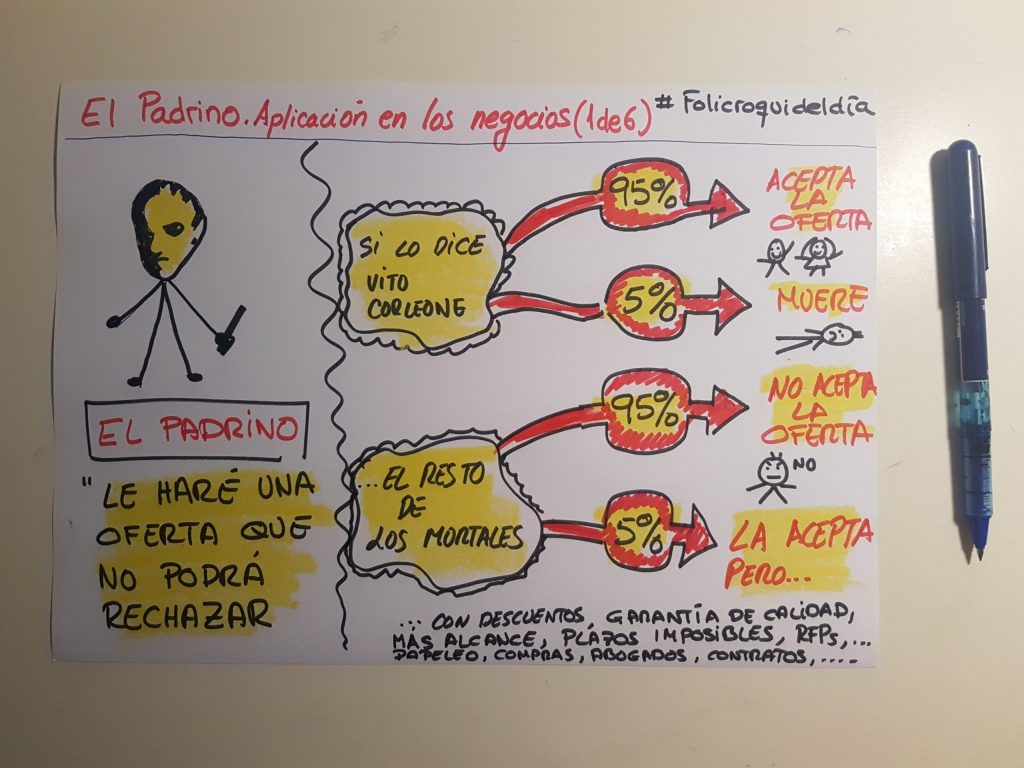 El Padrino. Aplicación en los negocios (1 de 6) # Folicroquideldía
EL PADRINO
"LE HARÉ UNA
OFERTA QUE
NO PODRÁ
RECHAZAR
SI LO DICE
VITO
CORLEONE
95%
ACEPTA
LA
OFERTA
5%
MUERE
...EL RESTO
DE
LOS MORTALES
95%
NO ACEPTA
LA
OFERTA
NO
5%
LA ACEPTA
PERO...
... CON DESCUENTOS, GARANTÍA DE CALIDAD,
MÁS ALCANCE, PLAZOS IMPOSIBLES, RFPs,...
PAPELEO, COMPRAS, ABOGADOS, CONTRATOS, ....